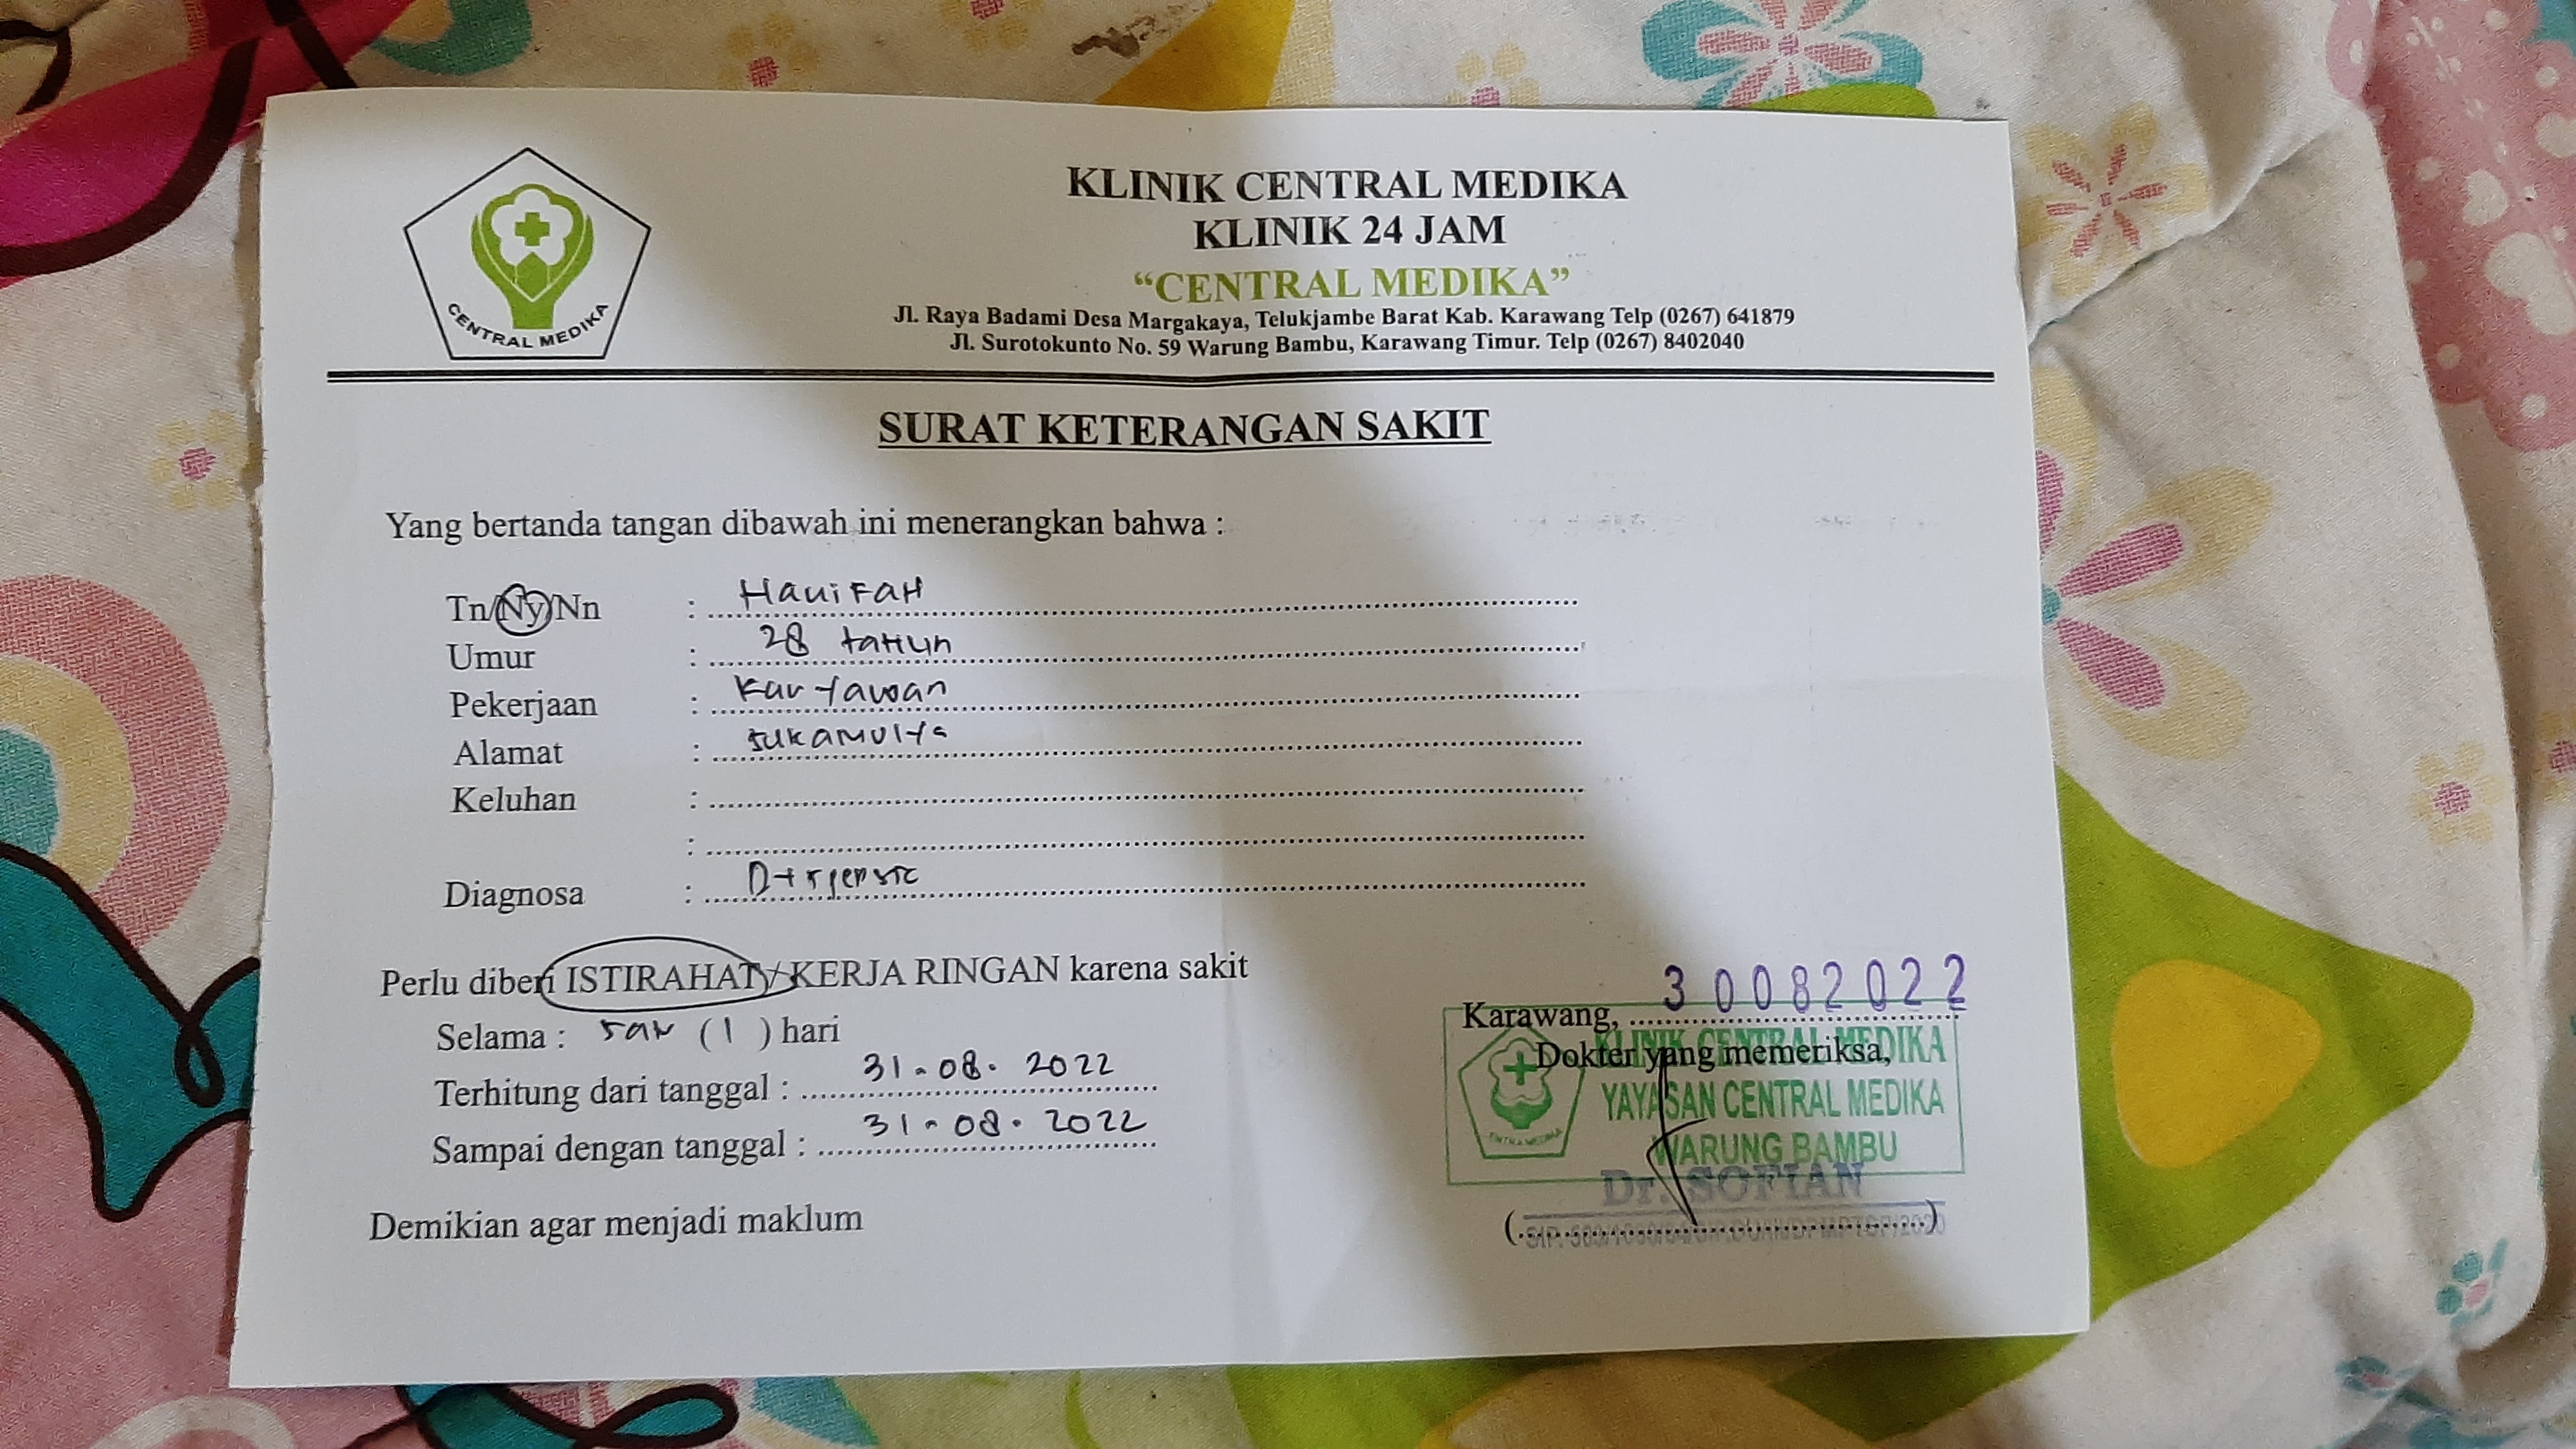 CENTRAL MEDIKA
KLINIK CENTRAL MEDIKA
KLINIK 24 JAM
“CENTRAL MEDIKA”
Jl. Raya Badami Desa Margakaya, Telukjambe Barat Kab. Karawang Telp (0267) 641879
Jl. Surotokunto No. 59 Warung Bambu, Karawang Timur. Telp (0267) 8402040
SURAT KETERANGAN SAKIT
Yang bertanda tangan dibawah ini menerangkan bahwa :
Tn/Ny/Nn : HaniFaH
Umur : 28 taHun
Pekerjaan : Karyawan
Alamat : Sukamulya
Keluhan :
:
Diagnosa :
Perlu diberi ISTIRAHAT/ KERJA RINGAN karena sakit
Selama : (1) hari
Terhitung dari tanggal : 31-08-2022
Sampai dengan tanggal : 31-08-2022
Demikian agar menjadi maklum
Karawang, 3 0 0 8 2 0 2 2
Dokter yang memeriksa,
KLINIK CENTRAL MEDIKA
YAYASAN CENTRAL MEDIKA
WARUNG BAMBU
Dr. SOFIAN